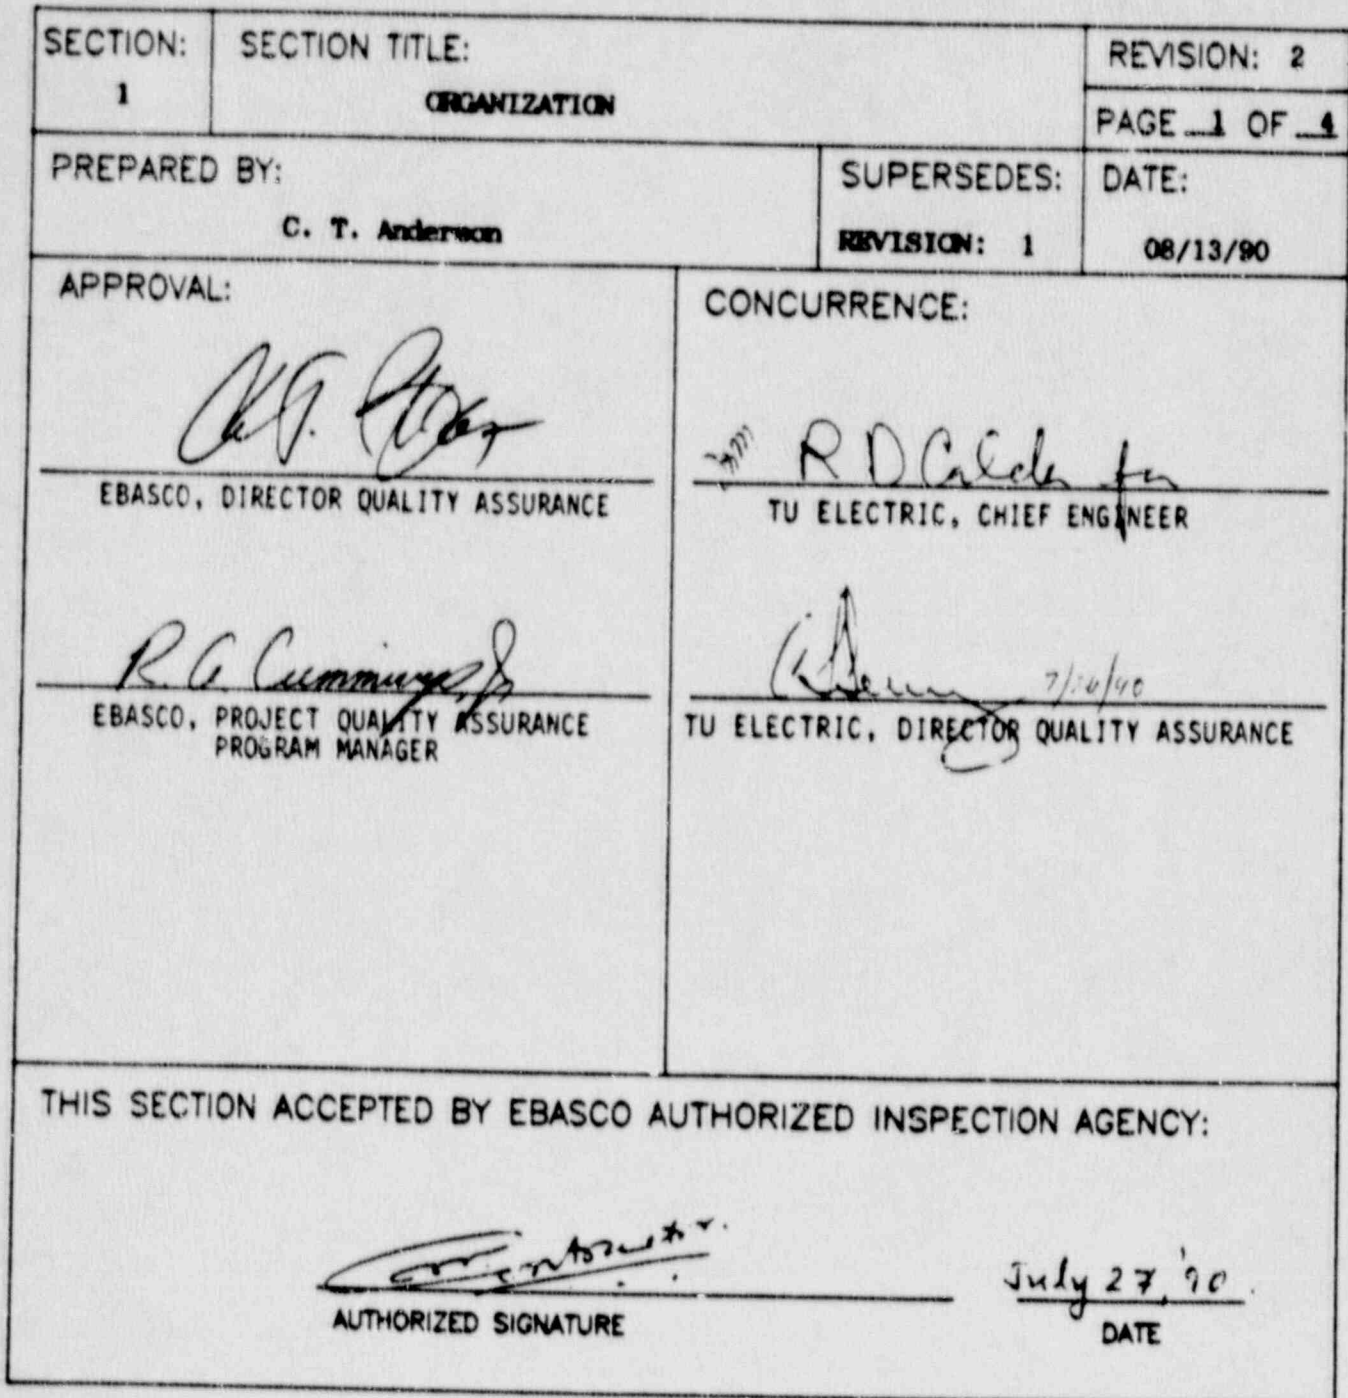 SECTION:
1
SECTION TITLE:
ORGANIZATION
REVISION: 2
PAGE 1 OF 4
PREPARED BY:
C. T. Anderson
SUPERSEDES:
REVISION: 1
DATE:
08/13/90
APPROVAL:
EBASCO, DIRECTOR QUALITY ASSURANCE
R. A. Cummings, Jr
EBASCO, PROJECT QUALITY ASSURANCE
PROGRAM MANAGER
CONCURRENCE:
R D Calder for
TU ELECTRIC, CHIEF ENGINEER
TU ELECTRIC, DIRECTOR QUALITY ASSURANCE
THIS SECTION ACCEPTED BY EBASCO AUTHORIZED INSPECTION AGENCY:
AUTHORIZED SIGNATURE
July 27, '90.
DATE